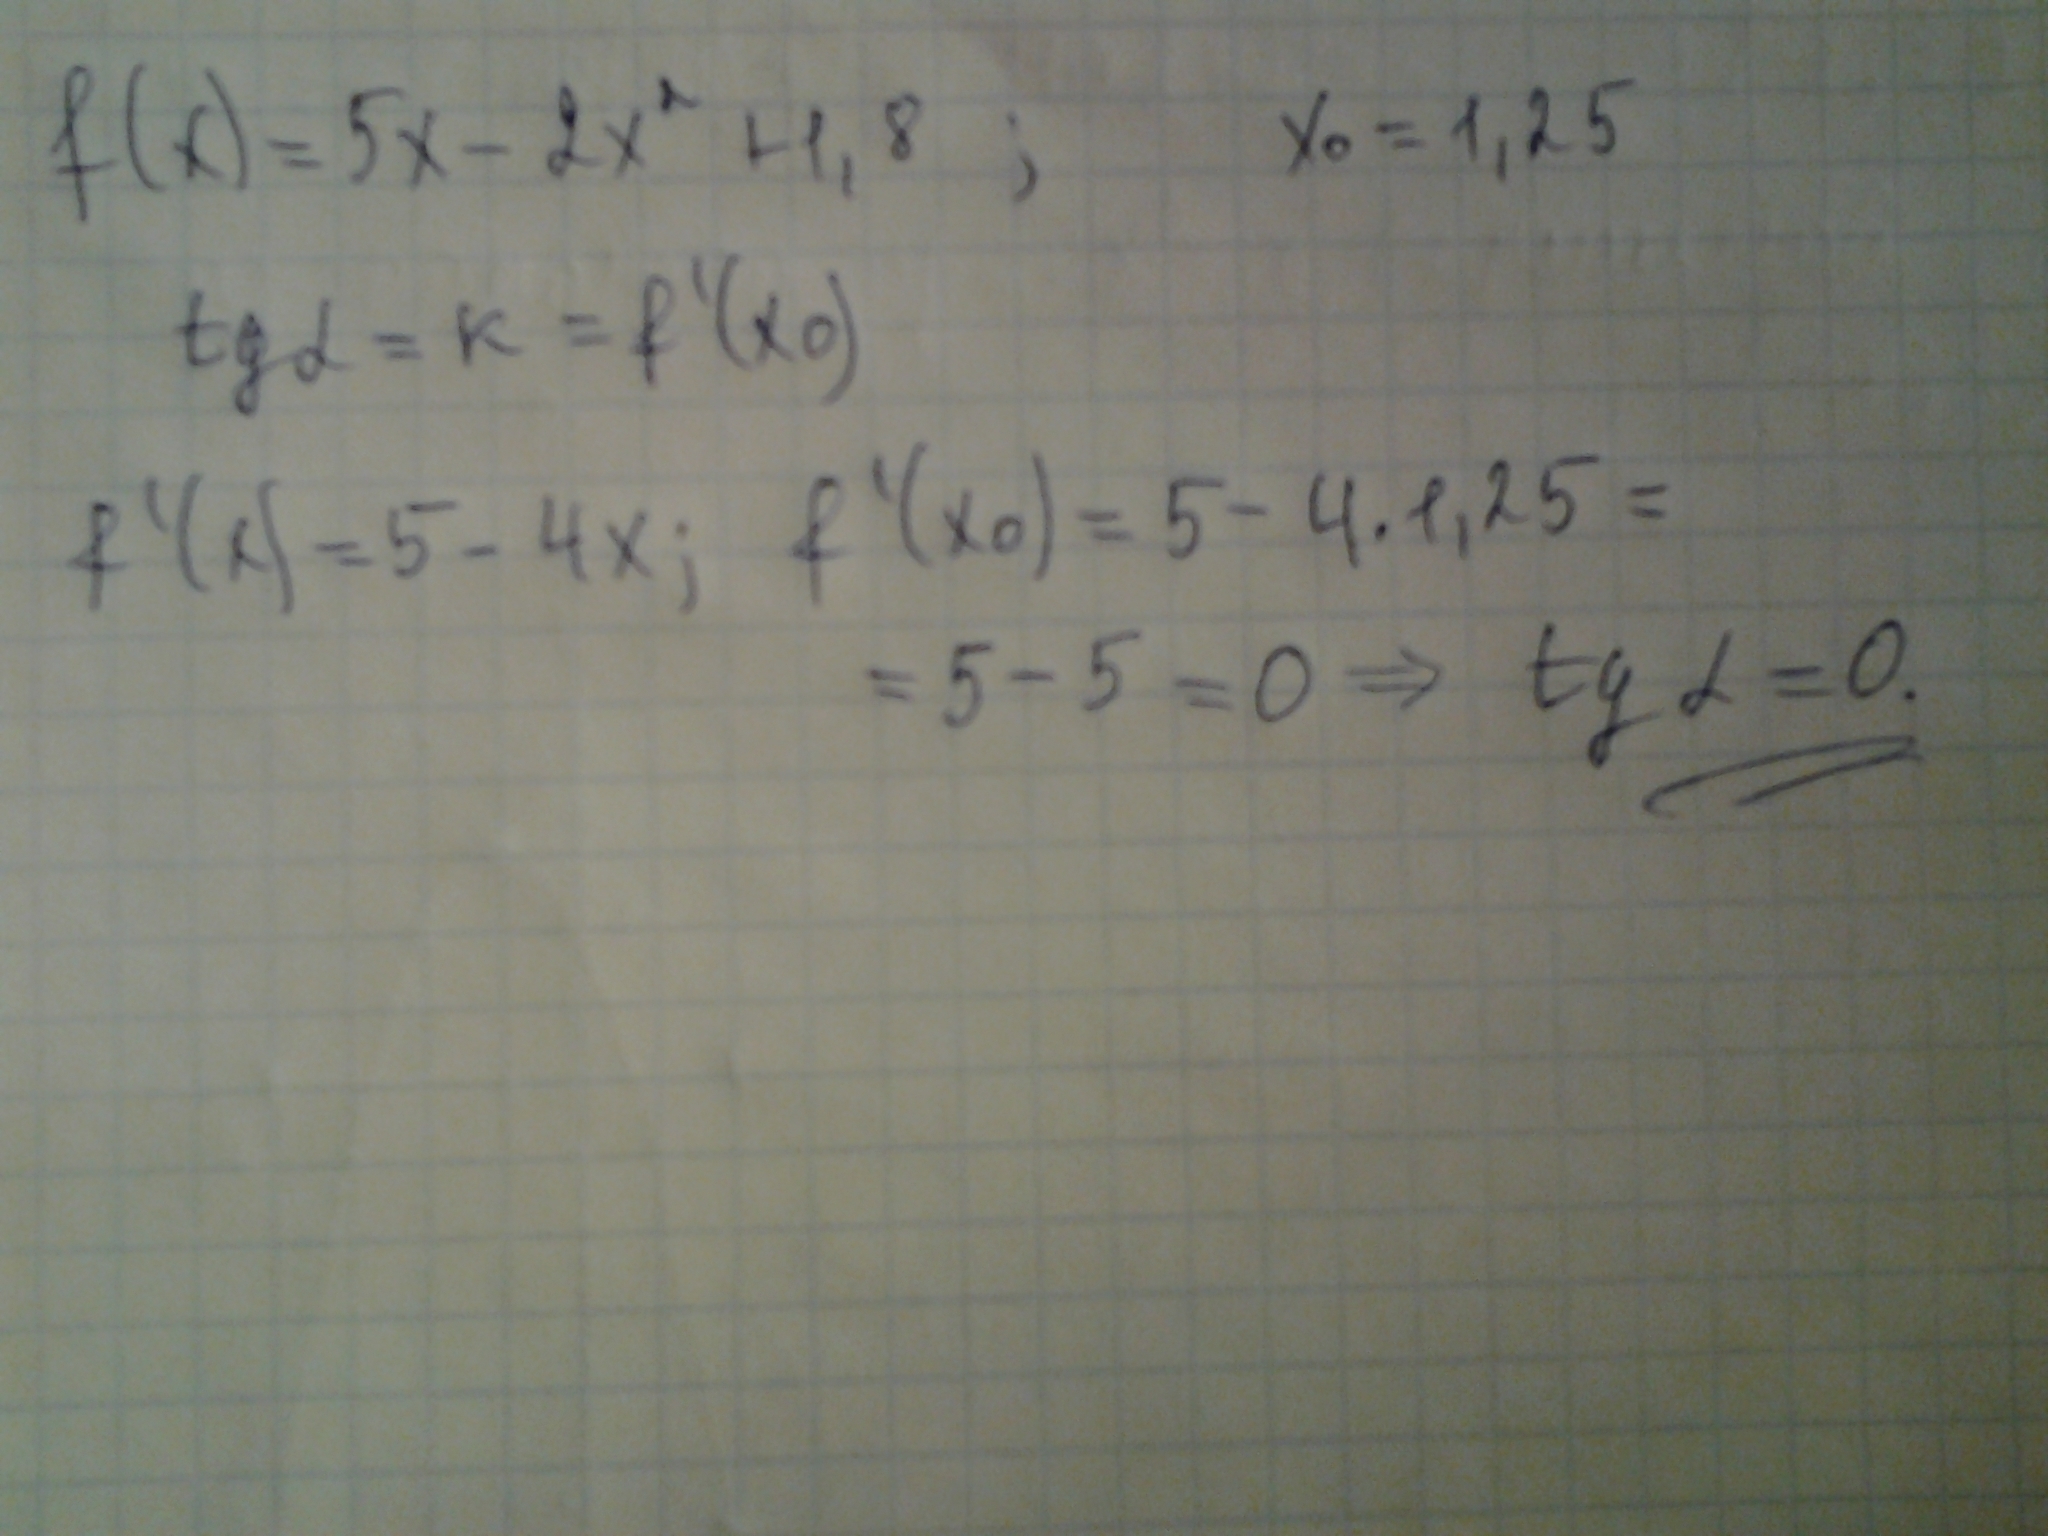 f(x) = 5x - 2x² + 1,8 ; x₀ = 1,25
tg α = к = f'(x₀)
f'(x) = 5 - 4x; f'(x₀) = 5 - 4 · 1,25 =
= 5 - 5 = 0 ⇒ tg α = 0.